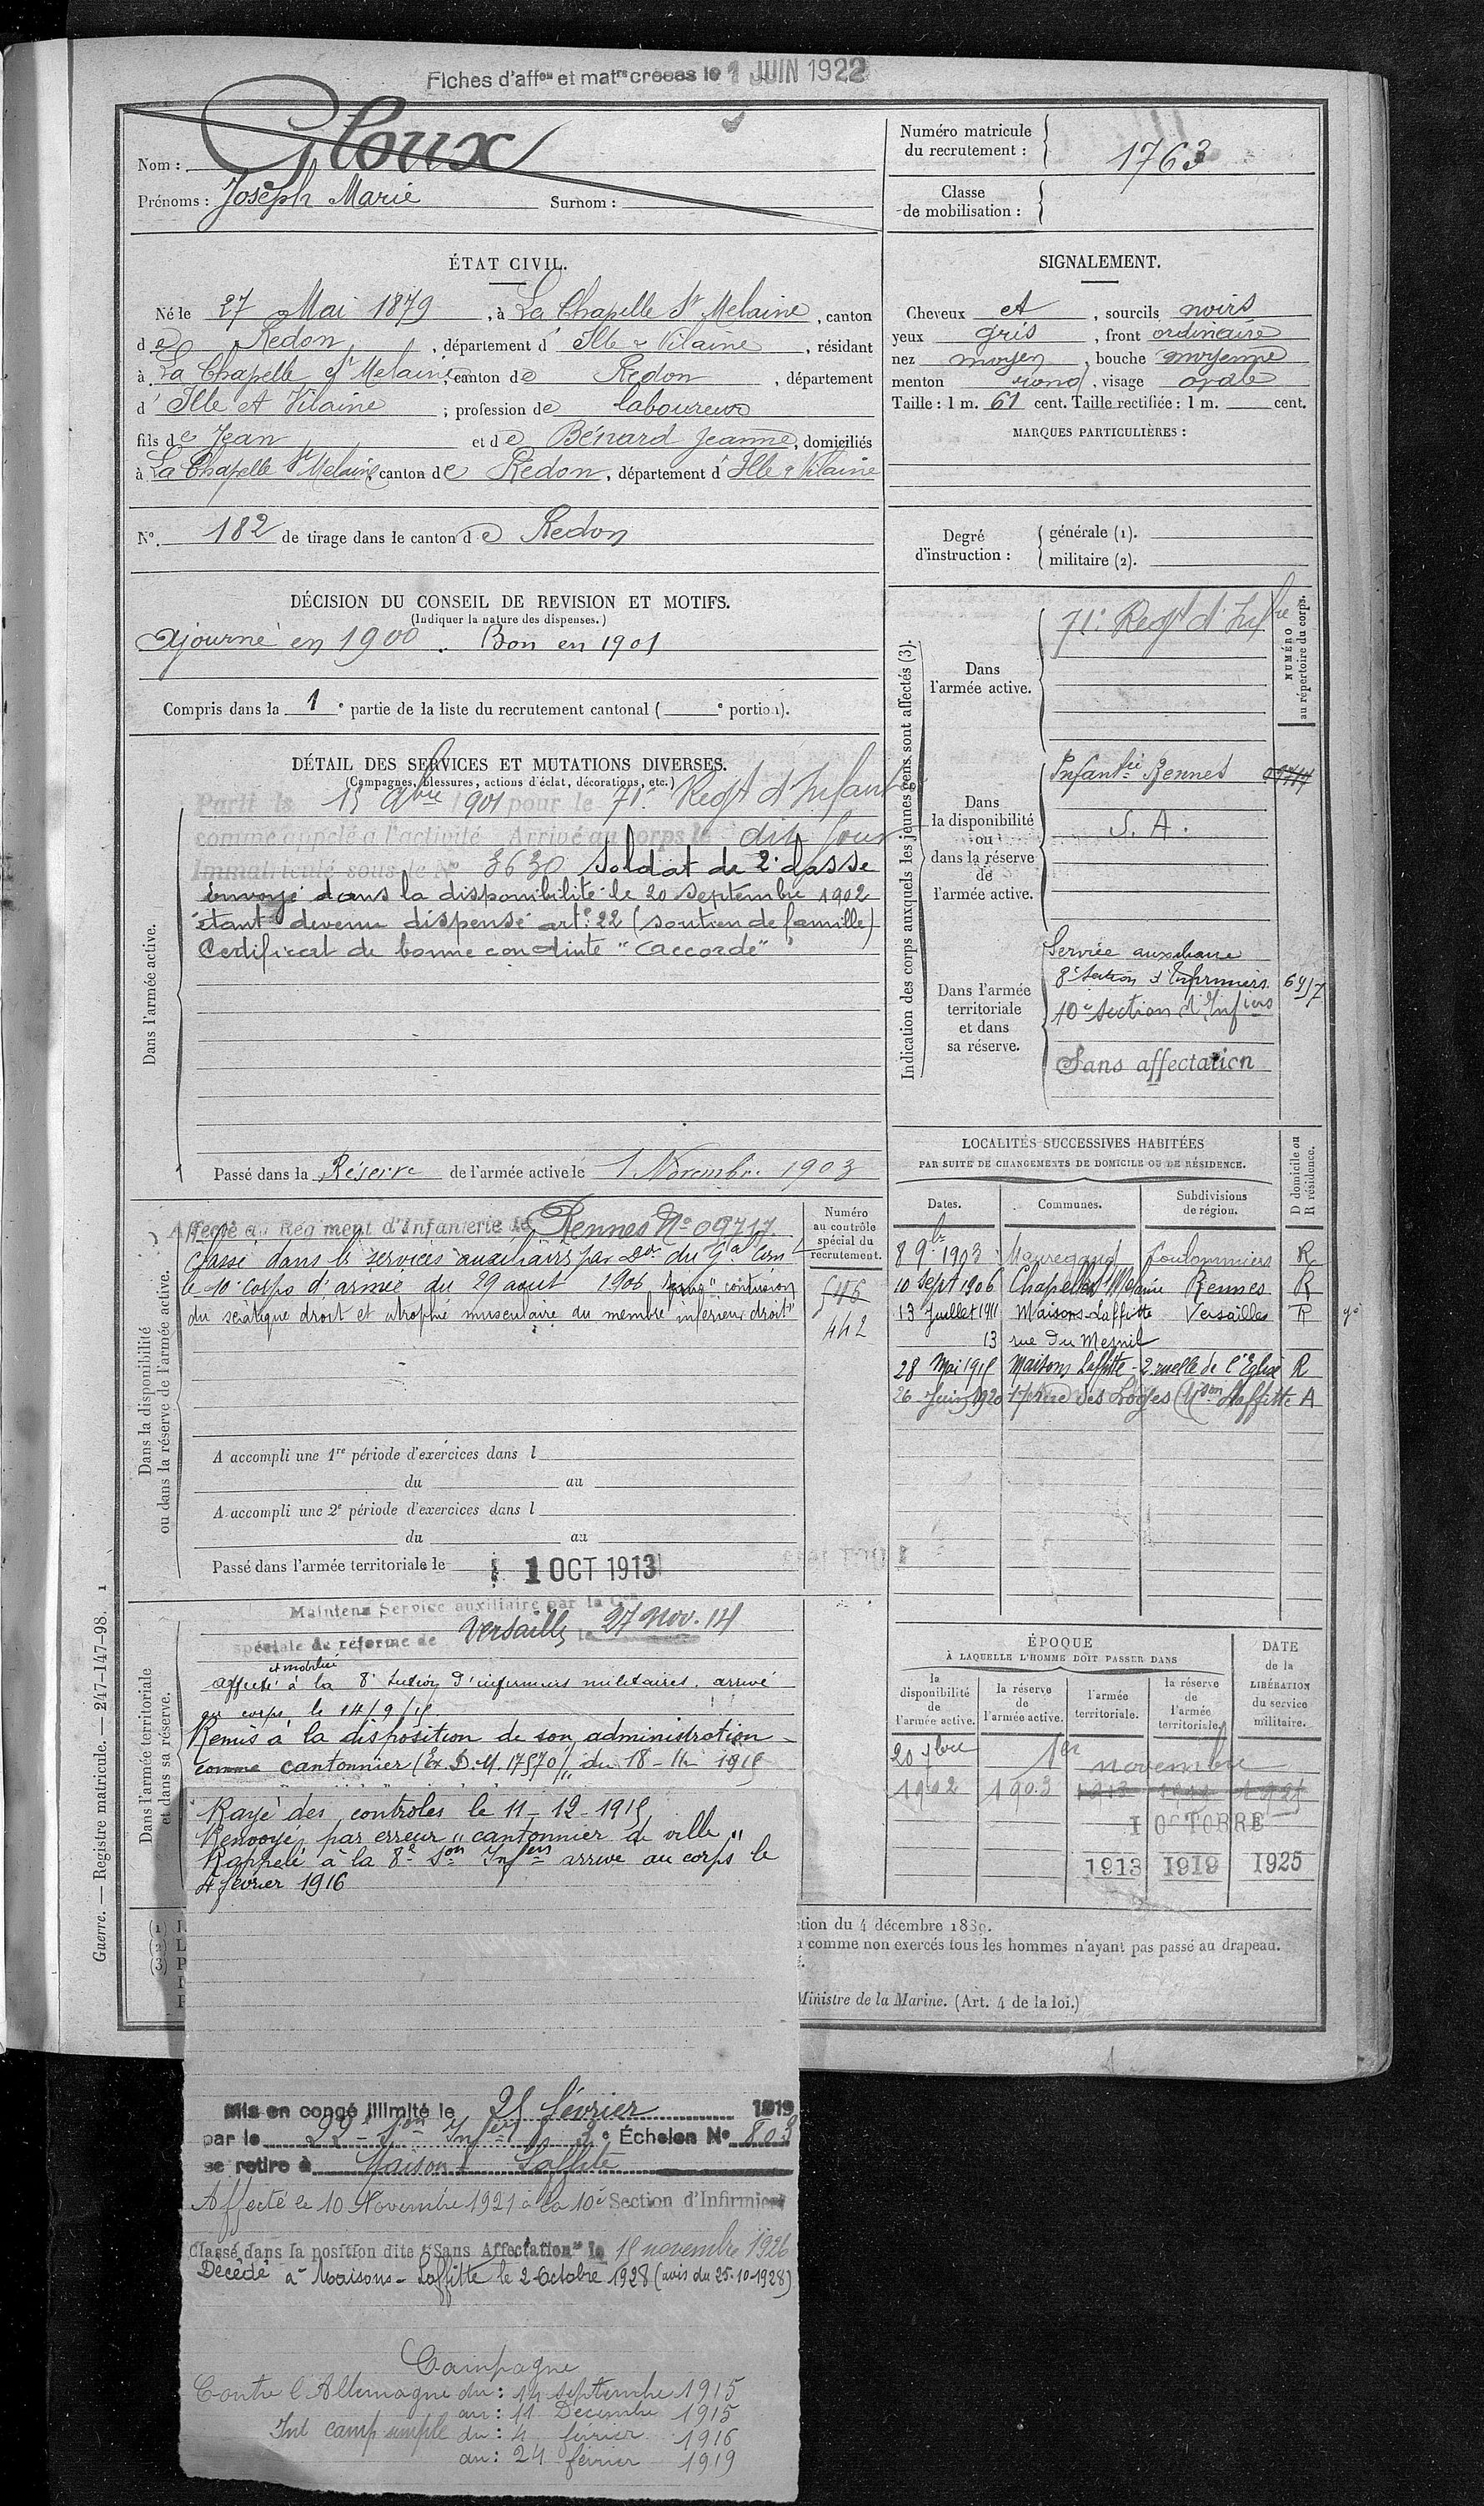 Fiches d'affon et matre créées le 1 JUIN 1922
Nom : Gloux
Prénoms : Joseph Marie Surnom :
Numéro matricule
du recrutement : 1763
Classe
de mobilisation :
ÉTAT CIVIL.
Né le 27 Mai 1879, à La Chapelle St Melaine, canton
de Redon, département d' Ille & Vilaine, résidant
à La Chapelle St Melaine, canton de Redon, département
d' Ille et Vilaine ; profession de laboureur
fils de Jean et de Bénard Jeanne, domiciliés
à La Chapelle St Melaine, canton de Redon, département d' Ille & Vilaine
N°. 182 de tirage dans le canton de Redon
SIGNALEMENT.
Cheveux et, sourcils noirs
yeux gris, front ordinaire
nez moyen, bouche moyenne
menton rond, visage ovale
Taille : 1 m. 61 cent. Taille rectifiée : 1 m. cent.
MARQUES PARTICULIÈRES :
Degré
d'instruction :
générale (1).
militaire (2).
DÉCISION DU CONSEIL DE REVISION ET MOTIFS.
(Indiquer la nature des dispenses.)
Ajourné en 1900. Bon en 1901
Compris dans la 1e partie de la liste du recrutement cantonal ( e portion).
DÉTAIL DES SERVICES ET MUTATIONS DIVERSES.
(Campagnes, blessures, actions d'éclat, décorations, etc.)
Dans l'armée active.
Parti le 15 9bre 1901 pour le 71e Regt d'Infant
comme appelé à l'activité Arrivé au corps le dit jour
Immatriculé sous le No 3630 Soldat de 2e classe
envoyé dans la disponibilité le 20 septembre 1902
étant devenu dispensé art. 22 (soutien de famille)
Certificat de bonne conduite "accordé"
Passé dans la Réserve de l'armée active le 1 Novembre 1903
Indication des corps auxquels les jeunes gens sont affectés (3).
NUMÉRO
au répertoire du corps.
Dans
l'armée active.
71e Regt d'Infre
Dans
la disponibilité
ou
dans la réserve
de
l'armée active.
Infanterie Rennes 09717
S. A.
Dans l'armée
territoriale
et dans
sa réserve.
Service auxiliaire
8e Section d'Infirmiers 6957
10e Section d'Infiers
Sans affectation
Dans la disponibilité
ou dans la réserve de l'armée active.
Affecté au Régiment d'Infanterie de Rennes No 09717
Classé dans les services auxiliaires par Don du Gal Com
le 10e Corps d'armée du 29 août 1906 pour "contusion
du sciatique droit et atrophie musculaire du membre inférieur droit"
Numéro
au contrôle
spécial du
recrutement.
546
442
A accompli une 1re période d'exercices dans l
du au
A accompli une 2e période d'exercices dans l
du au
Passé dans l'armée territoriale le 1 OCT 1913
LOCALITÉS SUCCESSIVES HABITÉES
PAR SUITE DE CHANGEMENTS DE DOMICILE OU DE RÉSIDENCE.
D domicile ou
R résidence.
Dates. Communes. Subdivisions
de région.
8 9bre 1903 Mauregard Coulommiers R
10 Sept 1906 Chapelle St Melaine Rennes R
13 Juillet 1911 Maisons-Laffitte Versailles R
13 rue du Mesnil
28 Mai 1915 Maisons Laffitte - 2 ruelle de l'Eglise R
26 Juin 1920 rue des Loges Mson Laffitte A
Dans l'armée territoriale
et dans sa réserve.
Maintenu Service auxiliaire par la Con
spéciale de réforme de Versailles le 27 Nov. 14
et mobilisé
affecté à la 8e Section d'infirmiers militaires. arrivé
au corps le 14/9/15
Remis à la disposition de son administration
comme cantonnier (Ex. D. M. 17570/11 du 18-11-1915
Rayé des contrôles le 11-12-1915
Renvoyé par erreur "cantonnier de ville"
Rappelé à la 8e Son Infers arrivé au corps le
4 février 1916
ÉPOQUE
À LAQUELLE L'HOMME DOIT PASSER DANS
DATE
de la
LIBÉRATION
du service
militaire.
la
disponibilité
de
l'armée active.
la réserve
de
l'armée active.
l'armée
territoriale.
la réserve
de
l'armée
territoriale.
20 7bre 1er novembre
1902 1903
1 OCTOBRE
1913 1919 1925
tion du 4 décembre 1889.
comme non exercés tous les hommes n'ayant pas passé au drapeau.
Ministre de la Marine. (Art. 4 de la loi.)
Guerre. — Registre matricule. — 247-147-98. 1
Mis en congé illimité le 25 février 1919
par le 22e Son Infers 3e Échelon No 803
se retire à Maisons Laffitte
Affecté le 10 Novembre 1921 à la 10e Section d'Infirmiers
Classé dans la position dite "Sans Affectation" le 15 novembre 1926
Décédé à Maisons-Laffitte le 2 Octobre 1928 (avis du 25-10-1928)
Campagne
Contre l'Allemagne du : 14 septembre 1915
au : 11 Décembre 1915
Int camp simple du : 4 février 1916
au : 24 février 1919